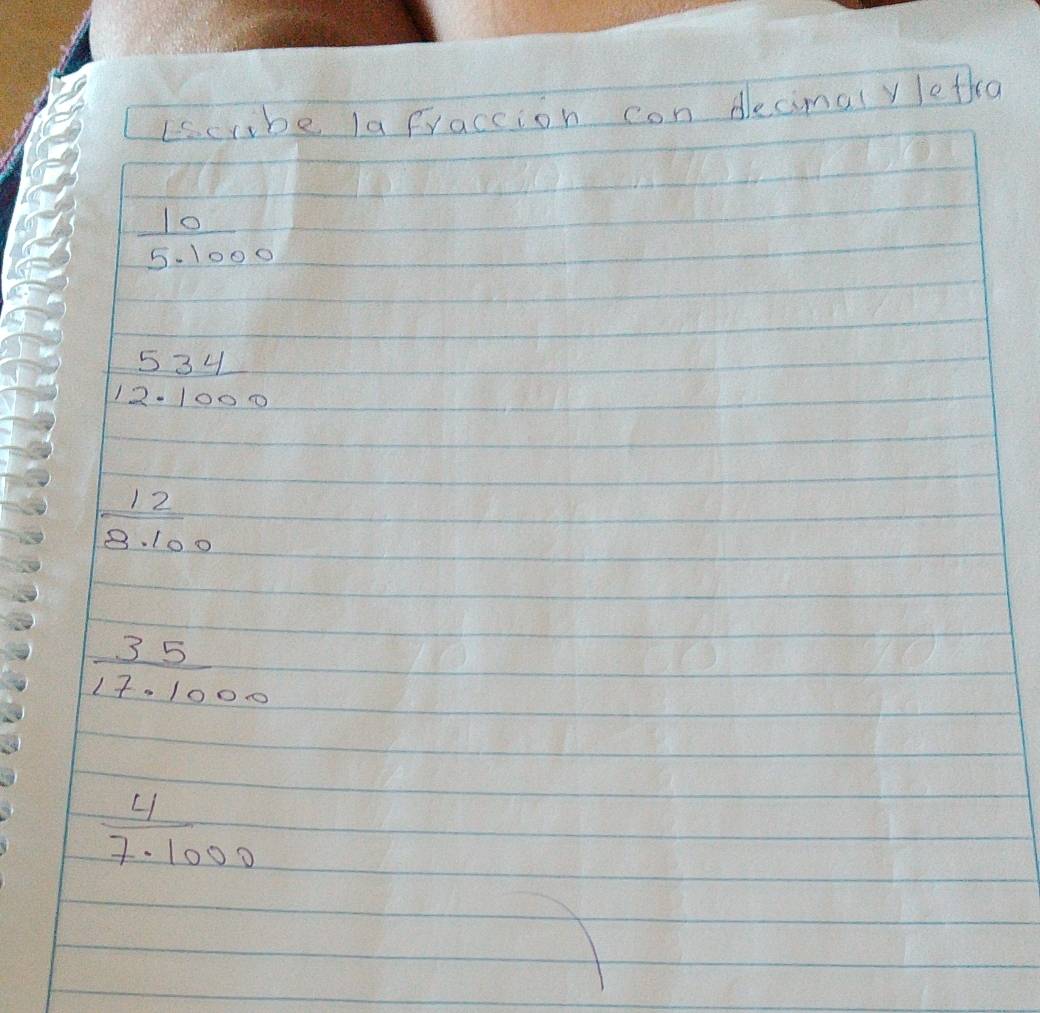 Escribe la fraccion con decimal y letra
10
5.1000
534
12.1000
12
8.100
35
17.1000
4
7.1000